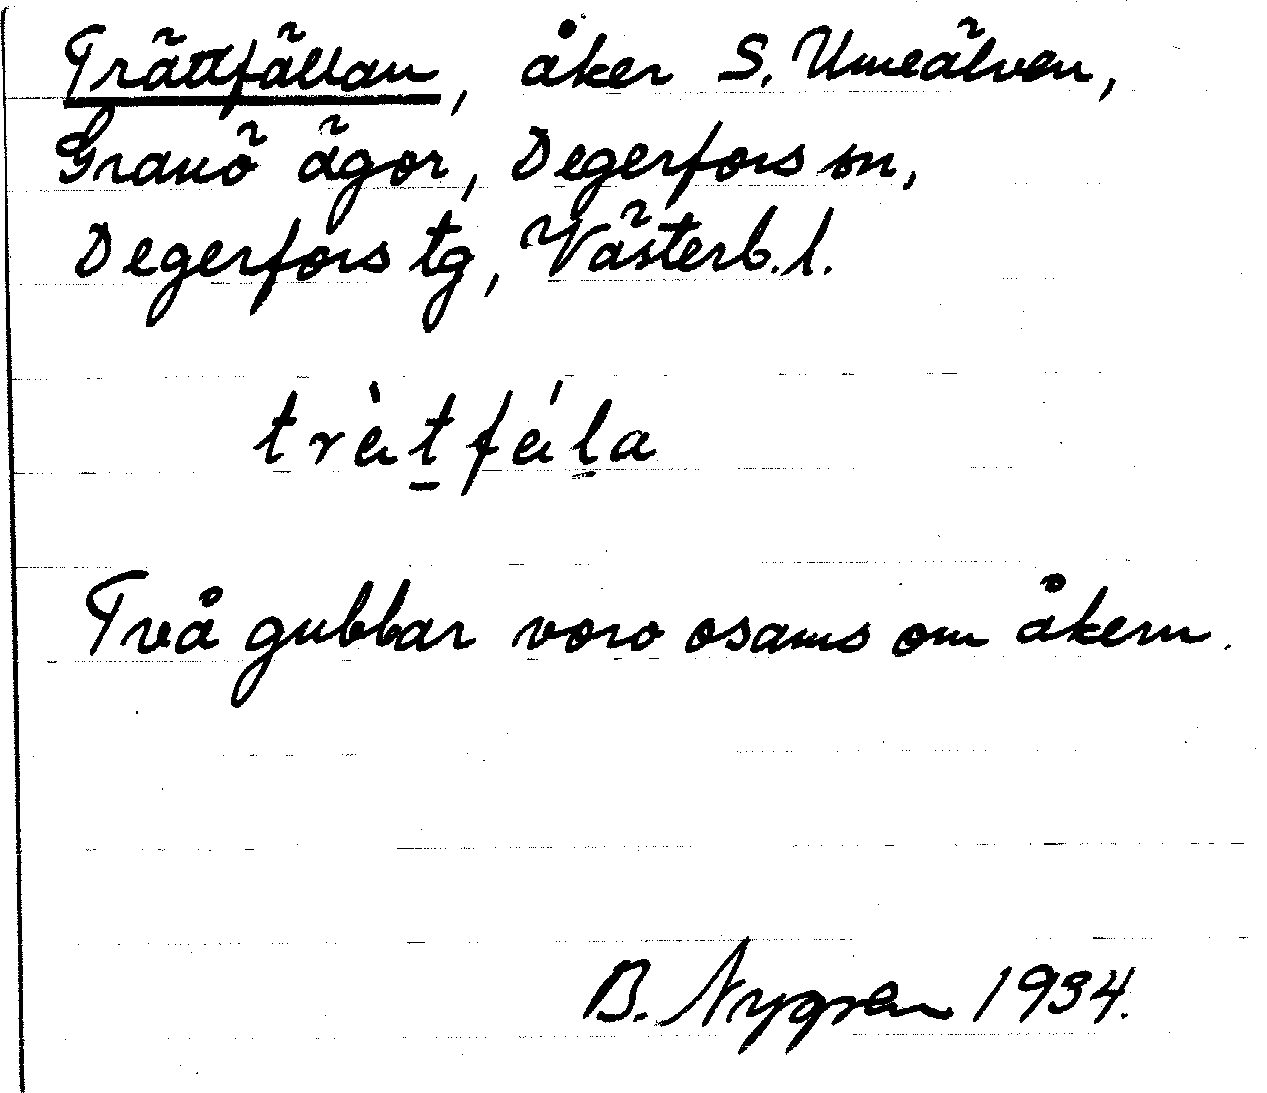 Trättfällan, åker S. Umeälven,
Granö ägor, Degerfors sn,
Degerfors tg, Västerb. l.
trä̀tfä́la
Två gubbar voro osams om åkern.
B. Nygren 1934.